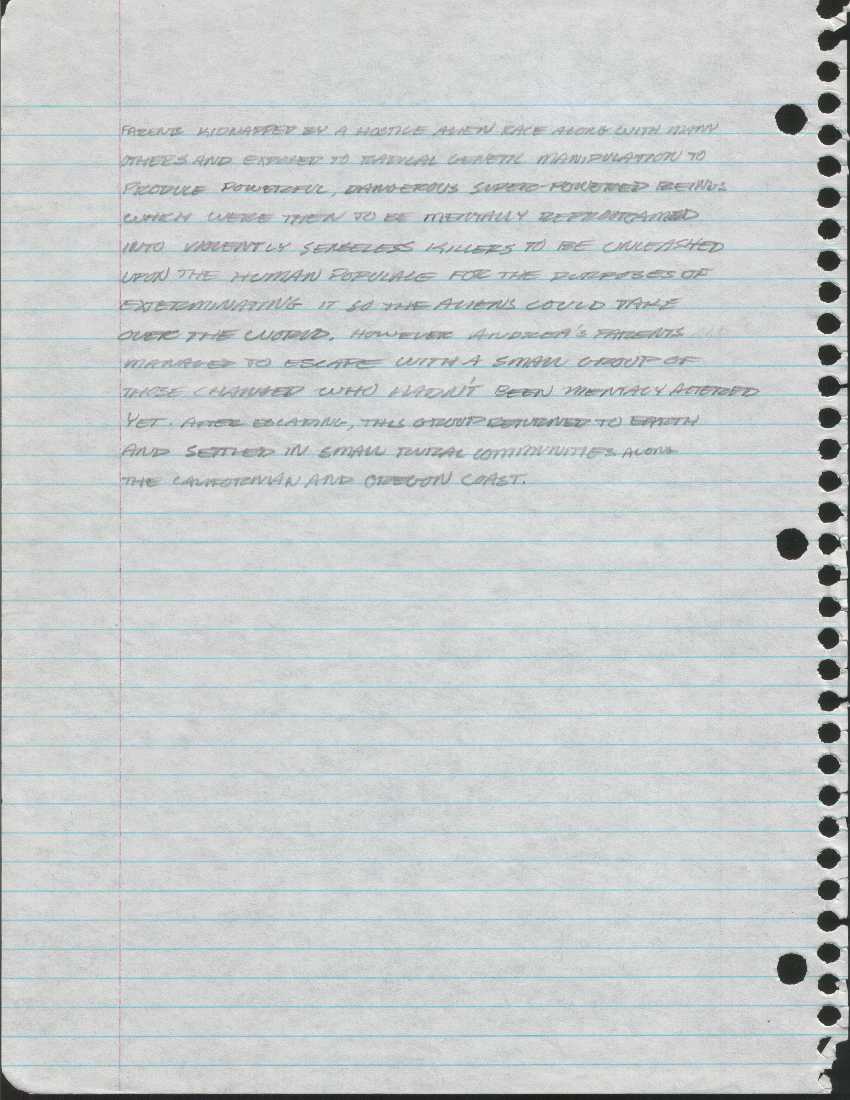 PARENTS KIDNAPPED BY A HOSTILE ALIEN RACE ALONG WITH MANY
OTHERS AND EXPOSED TO RADICAL GENETIC MANIPULATION TO
PRODUCE POWERFUL, DANGEROUS SUPER-POWERED BEINGS
WHICH WERE THEN TO BE MENTALLY REPROGRAMED
INTO VIOLENTLY SENSELESS KILLERS TO BE UNLEASHED
UPON THE HUMAN POPULACE FOR THE PURPOSES OF
EXTERMINATING IT SO THE ALIENS COULD TAKE
OVER THE WORLD. HOWEVER ANDREA'S PARENTS
MANAGED TO ESCAPE WITH A SMALL GROUP OF
THOSE CHANGED WHO HADN'T BEEN MENTALY ALTERED
YET. AFTER ESCAPING, THIS GROUP RETURNED TO EARTH
AND SETTLED IN SMALL RURAL COMMUNITIES ALONG
THE CALIFORNIAN AND OREGON COAST.